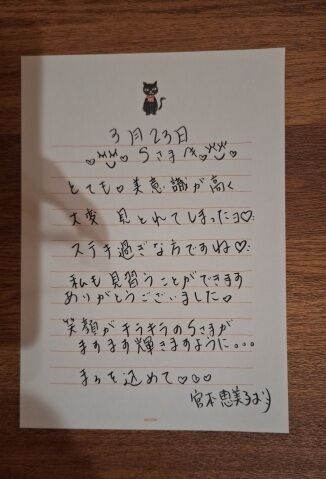 3月23日
Sさまへ
とても♡美意識が高く
大変見とれてしまったヨ♡
ステキ過ぎな方ですね♡
私も見習うことができます
ありがとうございました♡
笑顔がキラキラのSさまが
ますます輝きますように。。。
まぅを込めて♡♡♡
宮本恵美子より